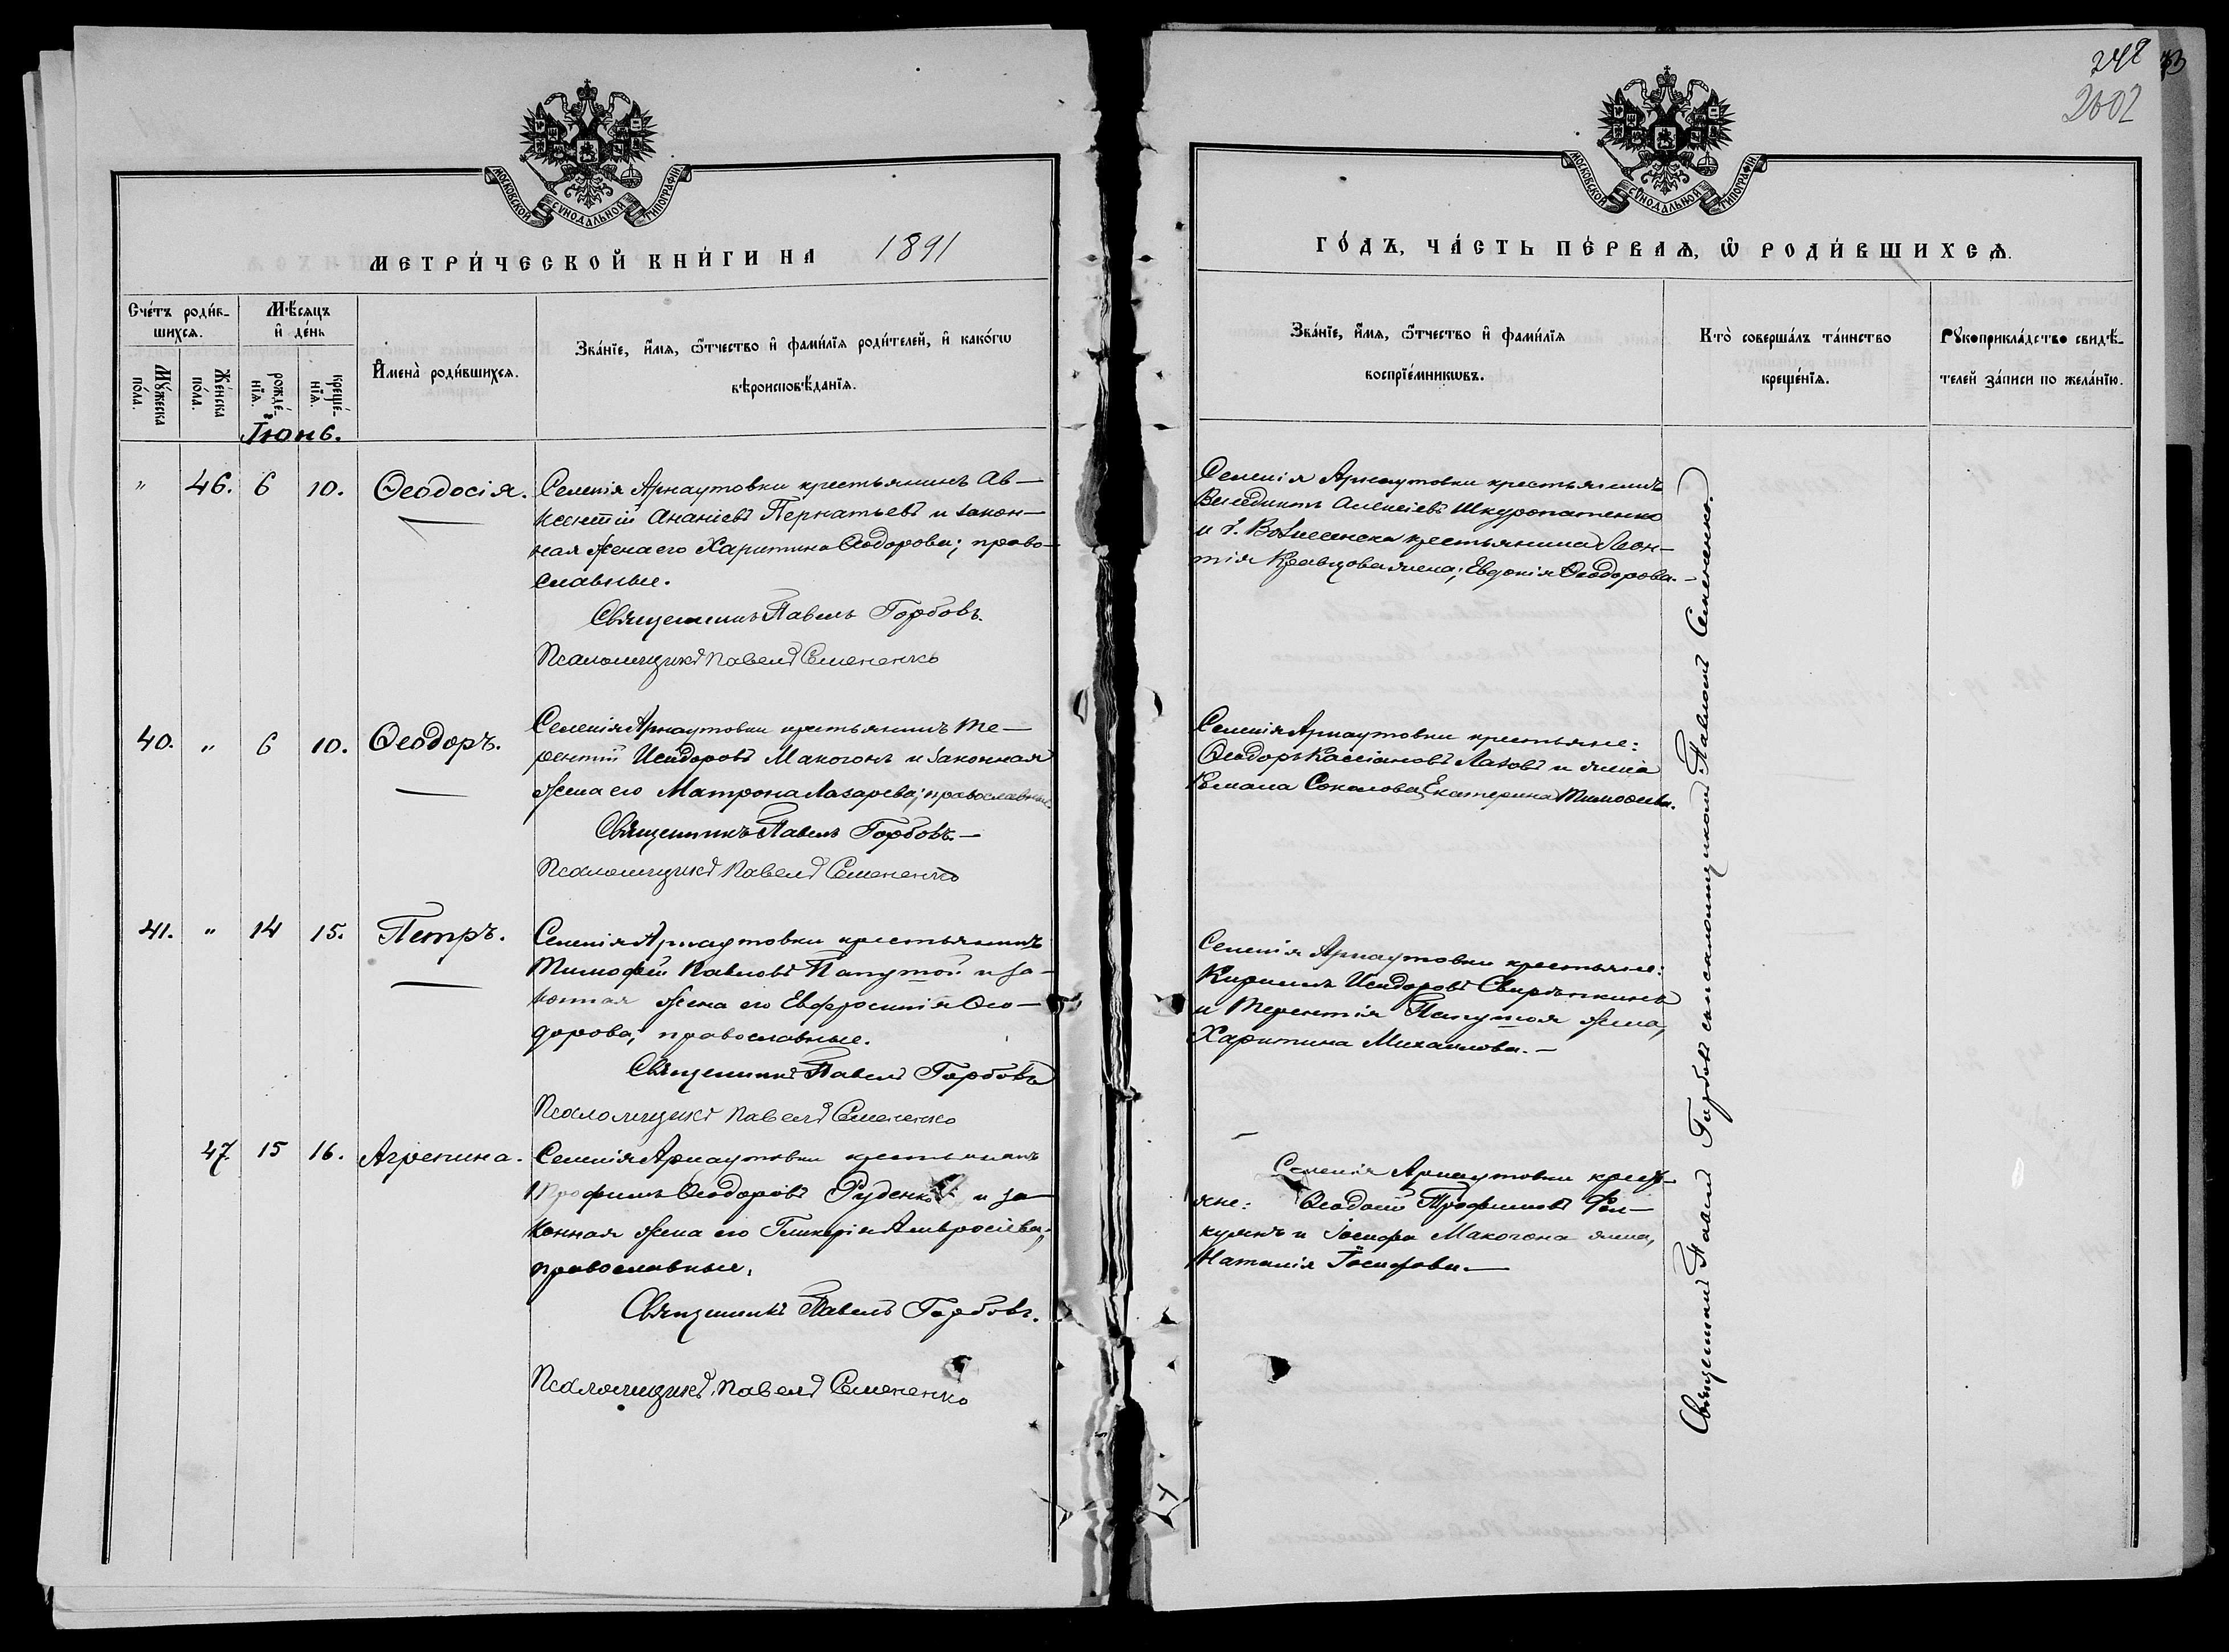 МОСКОВСКОЙ СУНОДАЛЬНОЙ ТИПОГРАФІИ
МЕТРИ́ЧЕСКОЙ КНИ́ГИ НА 1891
Сче́тъ роди́в-
шихсѧ.
Мѣ́сяцъ
и҆ де́нь
Мꙋ́жеска
по́ла.
Же́нска
по́ла.
рожде́-
нїѧ.
креще́-
нїѧ.
И҆мена̀ роди́вшихсѧ.
Зва́нїе, и҆́мѧ, ѻ҆́тчество и҆ фами́лїѧ роди́телей, и҆ како́гѡ
вѣроисповѣ́данїѧ.
Іюнь.
" 46. 6 10. Ѳеодосія.
Селенія Арнаутовки крестьянинъ Ав-
ксентій Ананіевъ Пернатьевъ и закон-
ная жена его Харитина Ѳеодорова; право-
славные.
Священникъ Павелъ Горбовъ.
Псаломщикъ Павелъ Семененко
40. " 6 10. Ѳеодоръ.
Селенія Арнаутовки крестьянинъ Те-
рентій Исидоровъ Макогонъ и законная
жена его Матрона Лазарева; православные.
Священникъ Павелъ Горбовъ.-
Псаломщикъ Павелъ Семененко
41. " 14 15. Петръ.
Селенія Арнаутовки крестьянинъ
Тимофей Павловъ Папутой и за-
конная жена его Евфросинія Ѳео-
дорова; православные.
Священникъ Павелъ Горбовъ
Псаломщикъ Павелъ Семененко
47. 15 16. Агрепина.
Селенія Арнаутовки крестьянинъ
Трофимъ Ѳеодоровъ Руденко и за-
конная жена его Гликерія Амвросіева;
православные.
Священникъ Павелъ Горбовъ.
Псаломщикъ Павелъ Семененко
248
2002
МОСКОВСКОЙ СУНОДАЛЬНОЙ ТИПОГРАФІИ
ГО́ДЪ, ЧА́СТЬ ПЕ́РВАѦ, Ѡ҆ РОДИ́ВШИХСѦ.
Зва́нїе, и҆́мѧ, ѻ҆́тчество и҆ фами́лїѧ
воспрїе́мникѡвъ.
Кто̀ соверша́лъ та́инство
креще́нїѧ.
Рꙋкоприкла́дство свидѣ́-
телей за́писи по жела́нїю.
Селенія Арнаутовки крестьянинъ
Венедиктъ Алексіевъ Шкуропатенко
и г. Вознесенска крестьянина Леон-
тія Кравцова жена; Евдокія Ѳеодорова.-
Селенія Арнаутовки крестьяне:
Ѳеодоръ Кассіановъ Лазовъ и жена
Романа Соколова, Екатерина Тимофеева.
Селенія Арнаутовки крестьяне:
Кириллъ Исидоровъ Свирѣпкинъ
и Терентія Папутоя жена,
Харитина Михаилова.-
Селенія Арнаутовки крестья-
яне: Ѳеодосій Трофимовъ
и Іосифа Макогона жена,
Наталія Іосифова.-
Священникъ Павелъ Горбовъ съ псаломщикомъ Павломъ Семененко.